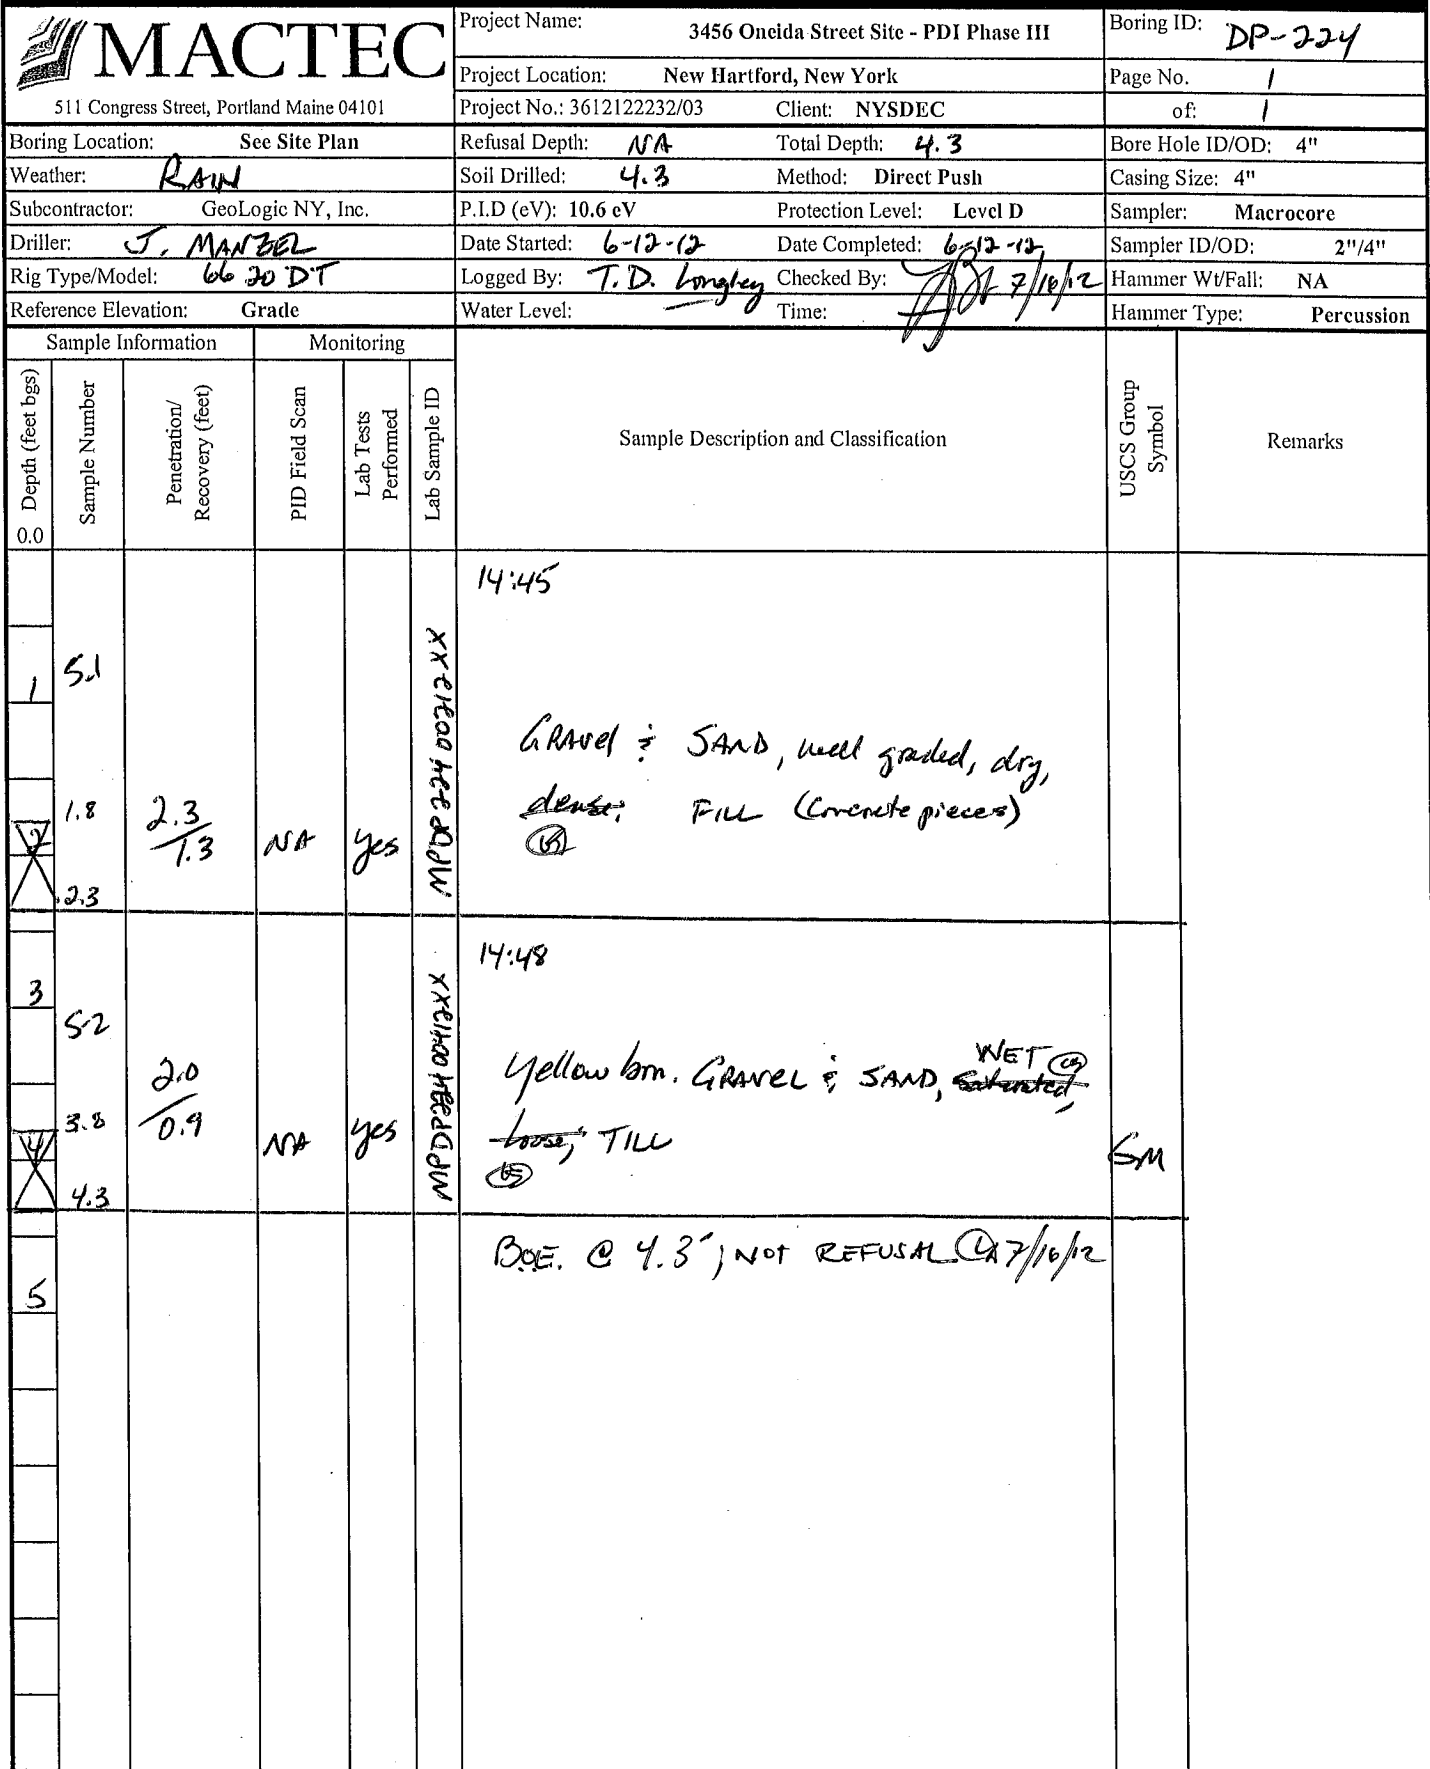 MACTEC
511 Congress Street, Portland Maine 04101
Project Name: 3456 Oneida Street Site - PDI Phase III
Project Location: New Hartford, New York
Project No.: 3612122232/03 Client: NYSDEC
Boring ID: DP-224
Page No. 1
of: 1
Boring Location: See Site Plan Refusal Depth: NA Total Depth: 4.3 Bore Hole ID/OD: 4"
Weather: RAIN Soil Drilled: 4.3 Method: Direct Push Casing Size: 4"
Subcontractor: GeoLogic NY, Inc. P.I.D (eV): 10.6 eV Protection Level: Level D Sampler: Macrocore
Driller: J. MANZEL Date Started: 6-12-12 Date Completed: 6-12-12 Sampler ID/OD: 2"/4"
Rig Type/Model: 6620 DT Logged By: T.D. Longley Checked By: 7/16/12 Hammer Wt/Fall: NA
Reference Elevation: Grade Water Level: — Time: Hammer Type: Percussion
Sample Information Monitoring
Depth (feet bgs)
0.0
Sample Number
Penetration/
Recovery (feet)
PID Field Scan
Lab Tests
Performed
Lab Sample ID
Sample Description and Classification
USCS Group
Symbol
Remarks
14:45
S-1
1
GRAVEL & SAND, well graded, dry,
dense, FILL (Concrete pieces)
1.8
2
2.3
1.3
NA
yes
2.3
14:48
3
S-2
WET
Yellow brn. GRAVEL & SAND, Saturated,
loose, TILL
2.0
0.9
3.8
4
NA
yes
GM
4.3
B.O.E. @ 4.3', NOT REFUSAL 7/16/12
5